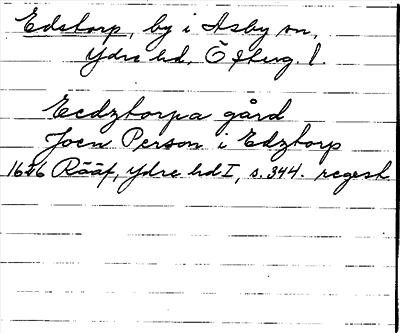 Edstorp, by i Asby sn,
Ydre hd, Österg. l.
Ecdztorpa gård
Joen Person i Edztorp
1626 Rääf, Ydre hd I, s. 344. regest